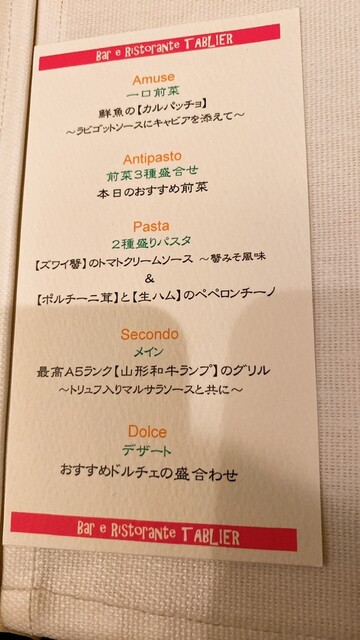 Bar e Ristorante TABLIER
Amuse
一口前菜
鮮魚の【カルパッチョ】
～ラビゴットソースにキャビアを添えて～
Antipasto
前菜3種盛合せ
本日のおすすめ前菜
Pasta
2種盛りパスタ
【ズワイ蟹】のトマトクリームソース ～蟹みそ風味
&
【ポルチーニ茸】と【生ハム】のペペロンチーノ
Secondo
メイン
最高A5ランク【山形和牛ランプ】のグリル
～トリュフ入りマルサラソースと共に～
Dolce
デザート
おすすめドルチェの盛合わせ
Bar e Ristorante TABLIER